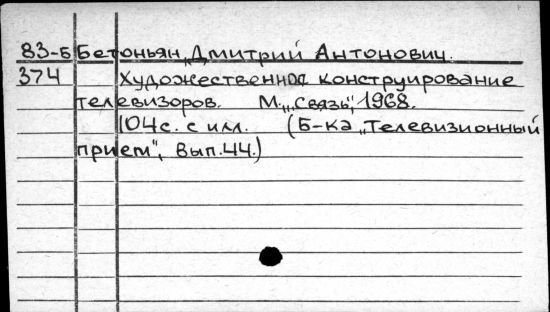 83-Б Бетоньян, Дмитрий Антонович.
374 Художественное конструирование
телевизоров. М., „Связь", 1968.
104с. с илл. (Б-ка „Телевизионный
прием", вып.44.)